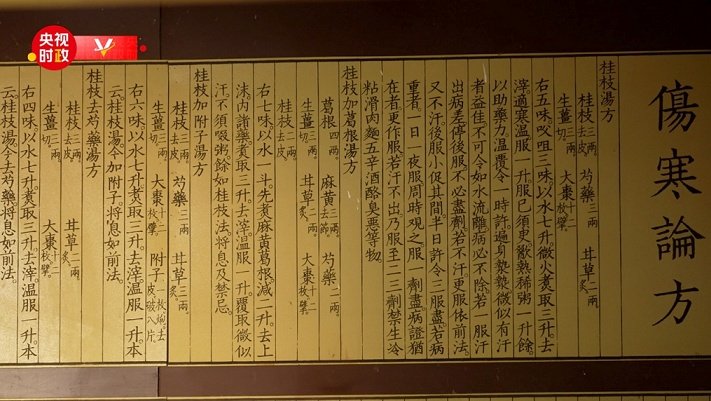 央视
时政
傷寒論方
桂枝湯方
桂枝三兩去皮 芍藥三兩 甘草二兩炙
生薑三兩切 大棗十二枚擘
右五味㕮咀三味以水七升。微火煑取三升。去
滓。適寒溫服一升。服已須臾歠熱稀粥一升餘。
以助藥力。溫覆令一時許。遍身漐漐微似有汗
者益佳。不可令如水流離。病必不除。若一服汗
出病差。停後服。不必盡劑。若不汗。更服依前法。
又不汗。後服小促其間。半日許令三服盡。若病
重者。一日一夜服。周時觀之。服一劑盡。病證猶
在者。更作服。若汗不出。乃服至二三劑。禁生冷
粘滑肉麵五辛酒酪臭惡等物。
桂枝加葛根湯方
葛根四兩 麻黃三兩去節 芍藥二兩
生薑三兩切 甘草二兩炙 大棗十二枚擘
桂枝二兩去皮
右七味以水一斗。先煑麻黃葛根。減二升。去上
沫。內諸藥。煑取三升。去滓。溫服一升。覆取微似
汗。不須啜粥。餘如桂枝法。將息及禁忌。
桂枝加附子湯方
桂枝三兩去皮 芍藥三兩 甘草三兩炙
生薑三兩切 大棗十二枚擘 附子一枚炮去皮破八片
右六味以水七升。煑取三升。去滓。溫服一升。本
云桂枝湯。今加附子。將息如前法。
桂枝去芍藥湯方
桂枝三兩去皮 甘草二兩炙
生薑三兩切 大棗十二枚擘
右四味以水七升。煑取三升。去滓。溫服一升。本
云桂枝湯。今去芍藥。將息如前法。